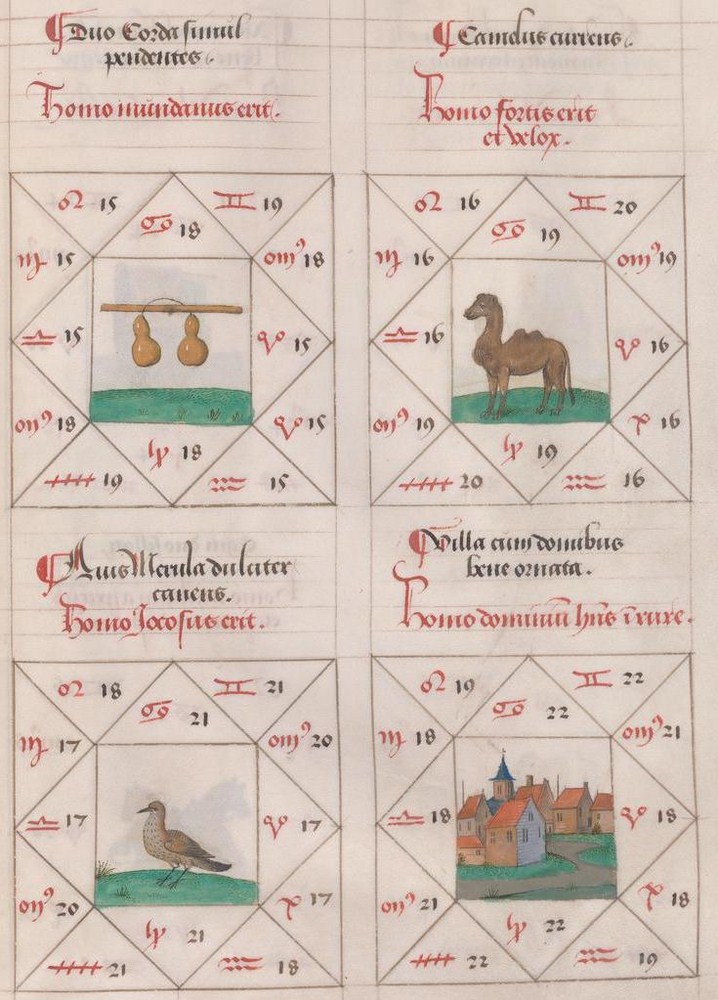 Duo Corda simul
pendentes.
Homo mundanus erit.
15 18 19
15 18
15 15
18 15
19 18 15
Camelus currens.
Homo fortis erit
et velox.
16 19 20
16 19
16 16
19 16
20 19 16
Auis Merula dulciter
canens.
Homo Jocosus erit.
18 21 21
17 20
17 17
20 17
21 21 18
Villa cum domibus
bene ornata.
Homo dominiū hñs ī rure.
19 22 22
18 21
18 18
21 18
22 22 19